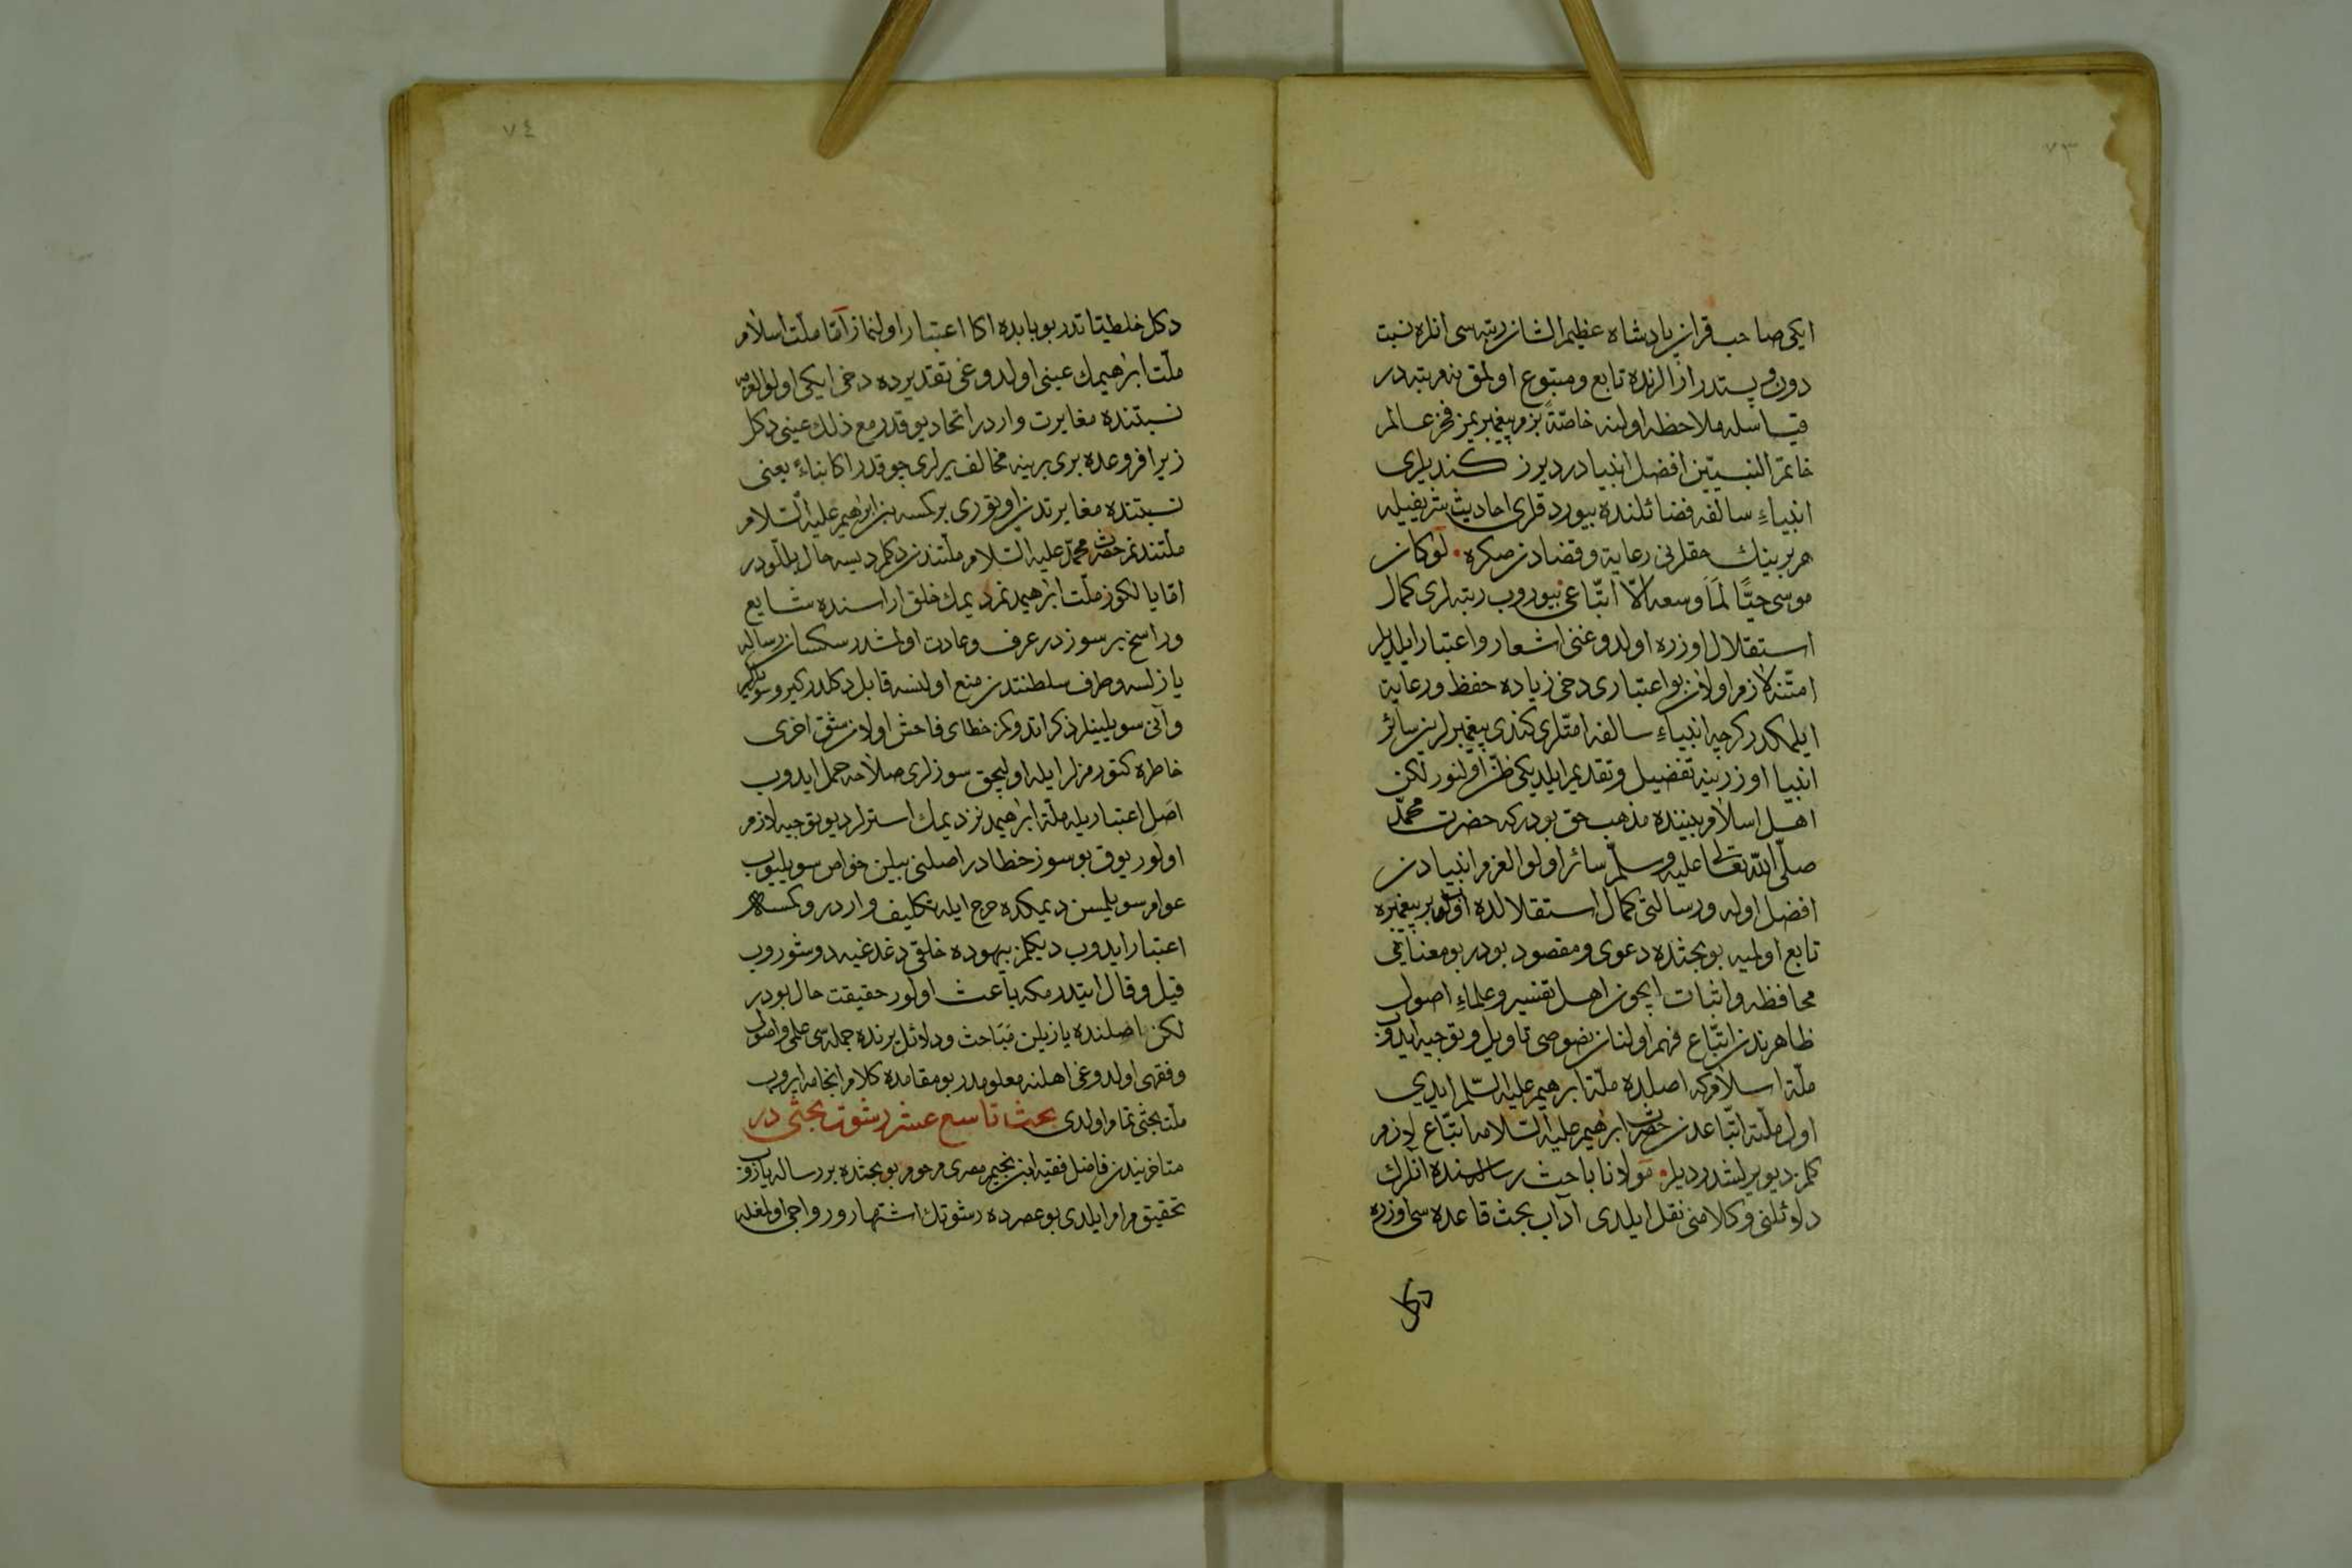 ٧٣
ايكی صاحب قران پادشاه عظيم الشان رتبه سی انلره نسبت
دون و پستدر انزالرنده تابع و متبوع اولمق نه مرتبه در
قياسله ملاحظه اولنه خاصّةً بزم پيغمبريمز فخر عالم
خاتم النبيّين افضل انبيادر ديرز كنديلری
انبياءِ سالفه فضائلنده بيوردقلری احاديث شريفيله
هر برينك حقلرنی رعاية و قضادن صكره لوكان
موسی حيًّا لمَا وسعه الّا اتّباعی بيوروب رتبه لری كمال
استقلال اوزره اولدوغنی اشعار و اعتبار ايلديلر
امّتنه لازم اولان بو اعتباری دخی زياده حفظ و رعاية
ايلمكدر كرچه انبياءِ سالفه امّتلری كندی پيغمبرلرين سائر
انبيا اوزرينه تفضيل و تقديم ايلديكی ظنّ اولنور لكن
اهل اسلام بيننده مذهب حق بودر كه حضرت محمّد
صلّی اللّه تعالی عليه وسلّم سائر اولوا العزم انبيادن
افضل اوله و رسالتی كمال استقلالده اولوب بر پيغمبره
تابع اولميه بو بحثده دعوی و مقصود بودر بو معنايی
محافظه و اثبات ايچون اهل تفسير و علماءِ اصول
ظاهرندن اتّباع فهم اولنان نصوصی تاويل و توجيه ايدوب
ملّة اسلام كه اصلده ملّة ابرهيم عليه السّلم ايدی
اول ملّته اتّباعدن حضرت ابرٰهيم عليه السّلامه اتّباع لازم
كلمز ديو يرلشدرديلر مولانا باحث رسالسنده انلرك
دلائلنی و كلامنی نقل ايلدی آداب بحث قاعده سی اوزره
دكل
٧٤
دكل خلطيّاتدر بو بابده اكا اعتبار اولنماز امّا ملّت اسلام
ملّت ابرٰهيمك عينی اولدوغی تقديرده دخی ايكی اولوالعزمه
نسبتنده مغايرت واردر اتحاد يوقدر مع ذلك عينی دكل
زيرا فروعده بری برينه مخالف يرلری چوقدر اكا بناءً يعنی
نسبتنده مغايرتدن اوتوری بر كسه بن ابرٰهيم عليه السّلام
ملّتندنم حضرت محمّد عليه السّلام ملّتندن دكلم ديسه حال
امّا يالكوز ملّت ابرٰهيمدنم ديمك خلق اراسنده شايع
و راسخ بر سوزدر عرف و عادت اولمشدر سكسان رساله
يازلسه و طرف سلطنتدن منع اولنسه قابل دكلدر
و آنی سويلينلر ذكر اتدوكمز خطای فاحش اولان شق اخری
خاطره كتورمزلر ايله اوليجق سوزلری صلاحه حمل ايدوب
اصَل اعتباريله ملّة ابرٰهيمدنز ديمك استرلر ديو توجيه لازم
اولور يوق بو سوز خطادر اصلنی بيلن خواص سويليوب
عوام سويلمسن ديمكده حرج ايله تكليف واردر و كمسه
اعتبار ايدوب ديكلمز بيهوده خلقی دغدغيه دوشوروب
قيل و قال ايتدرمكه باعث اولور حقيقت حال بودر
لكن اصلنده يازيلن مَبَاحث و دلائل يرنده جمله سی علمی و اصولی
و فقهی اولدوغی اهلنه معلومدر بو مقامده كلام انجامه ايروب
ملّت بحثی تمام اولدی بحث تاسع عشر رشوت بحثی در
متاخريندن فاضل فقيه ابن نجيم مصری مرحوم بو بحثده بر رساله يازوب
تحقيق مرام ايلدی بو عصرده رشوتك اشتهار و رواجی اولمغله